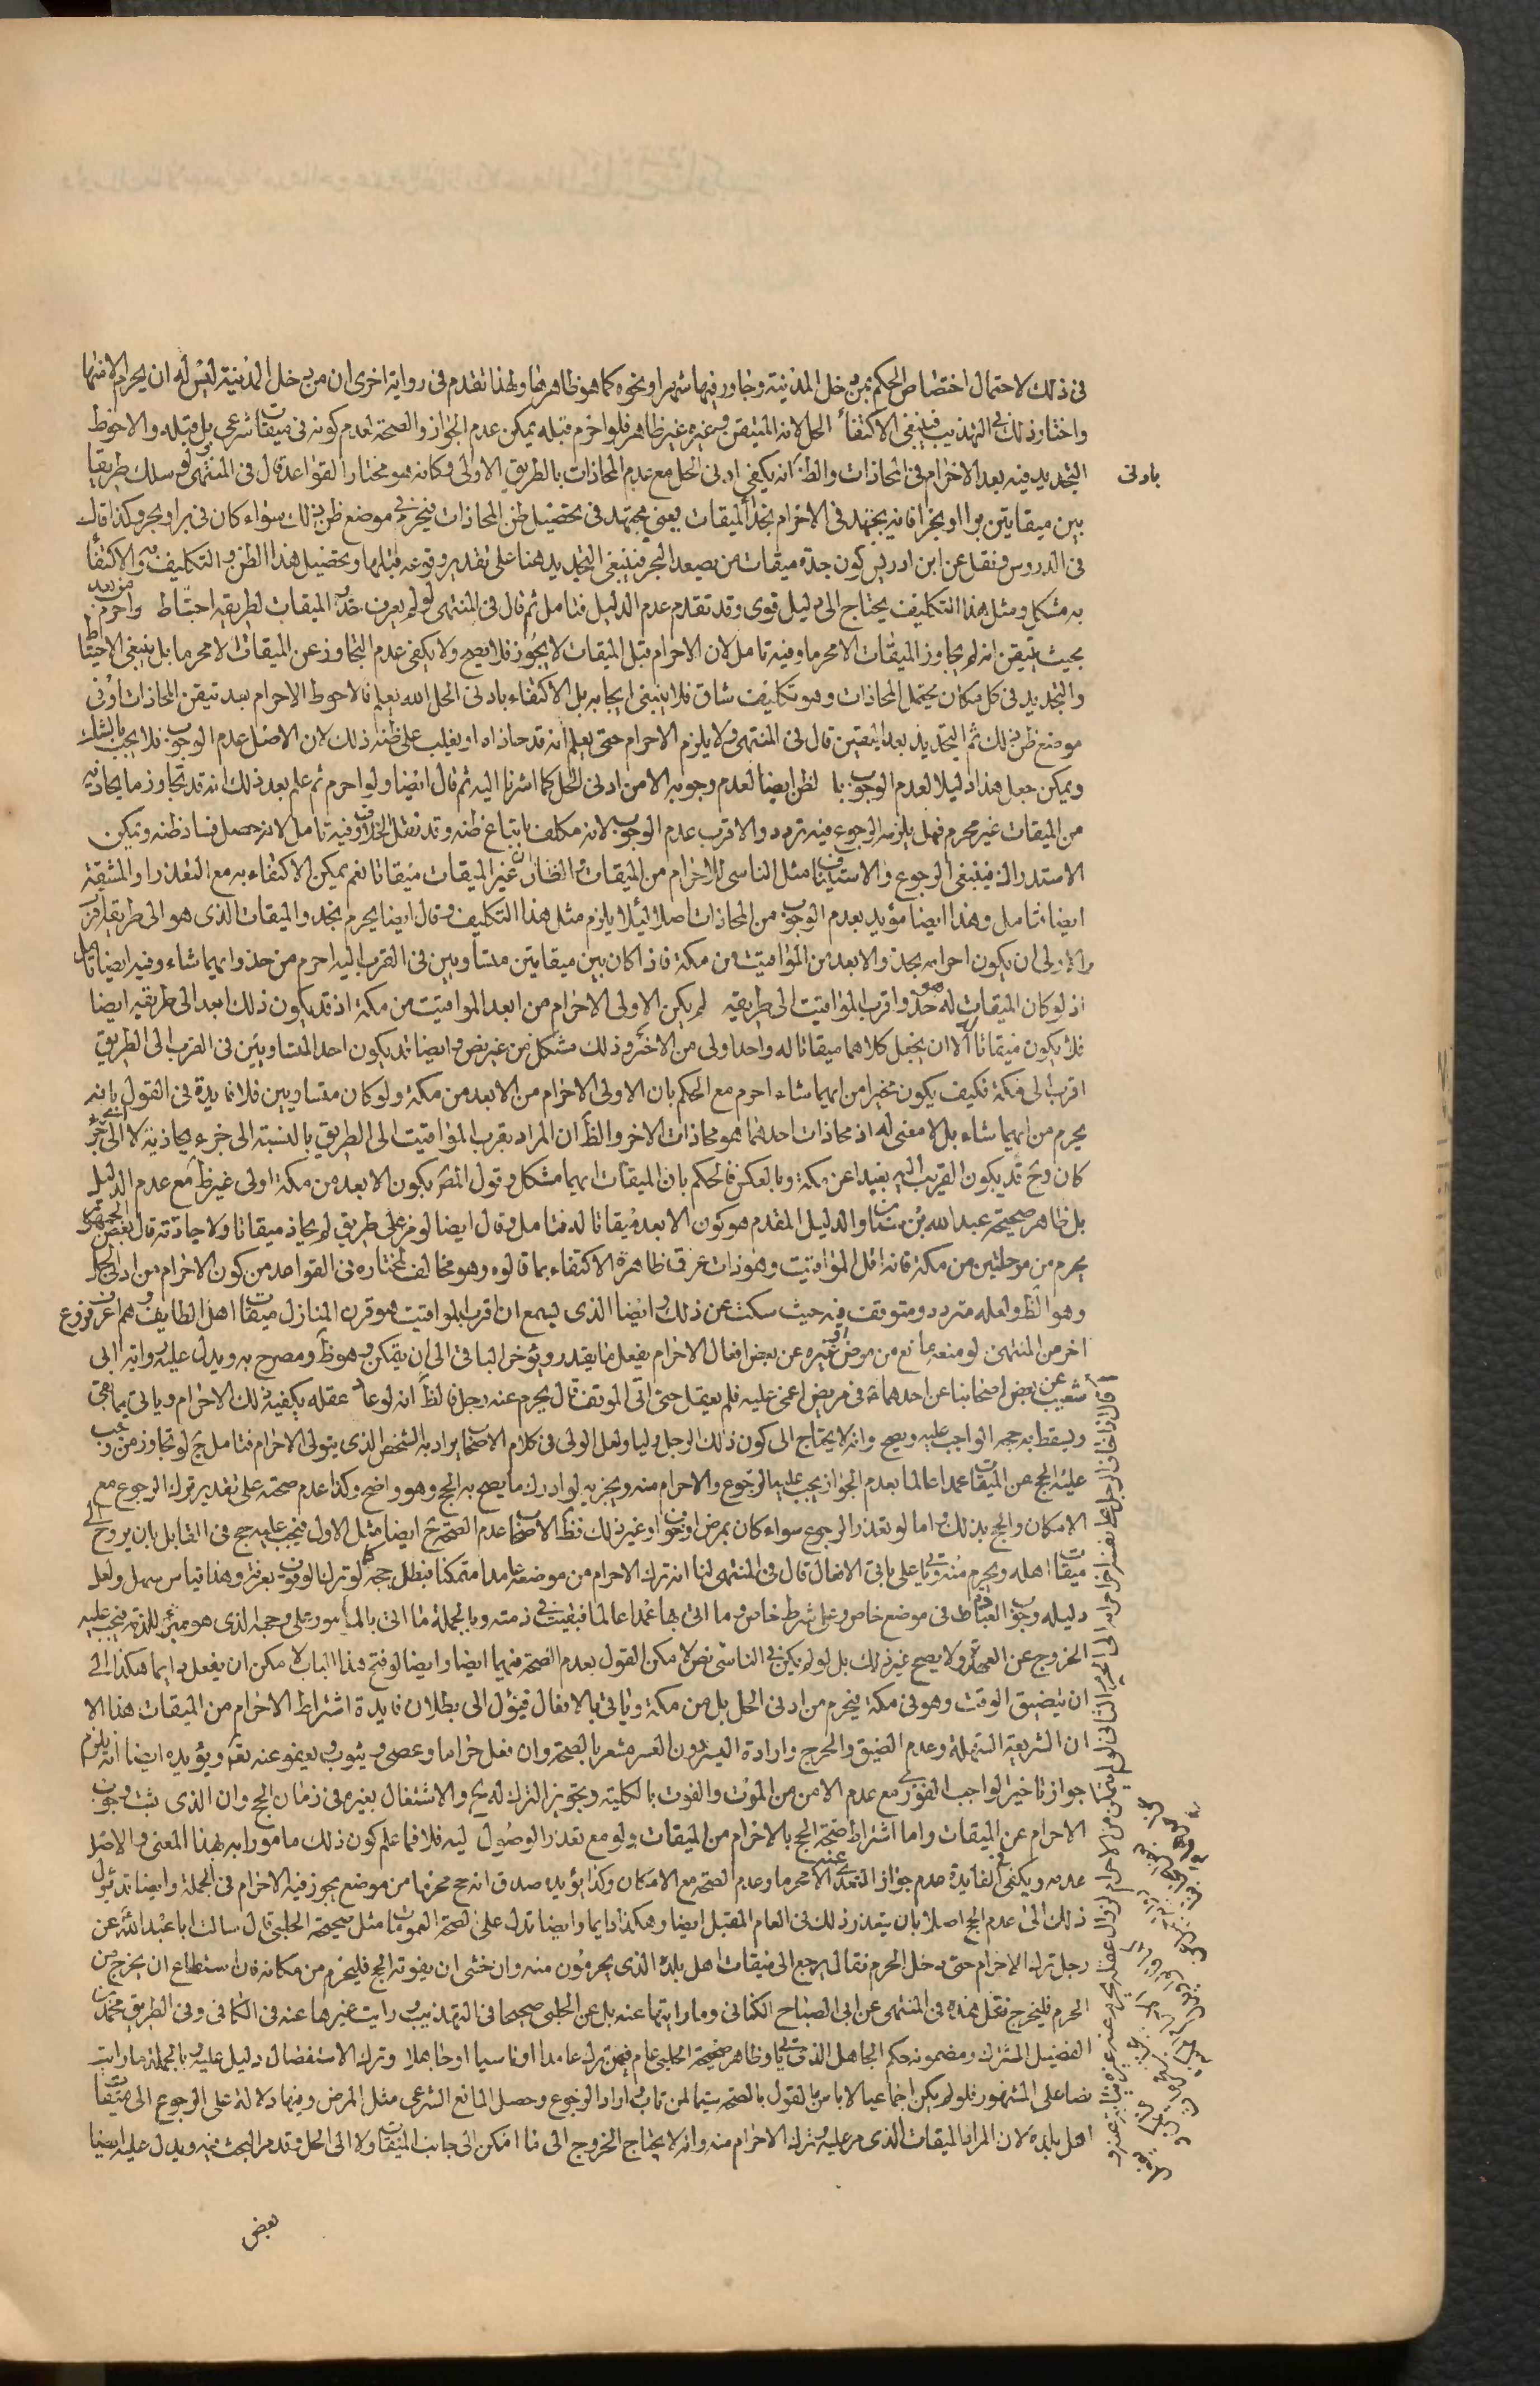 في ذلك لاحتمال اختصاص الحكم بمن دخل المدينة وجاور فيها شهرا ونحوه كما هو ظاهرها ولهذا تقدم في رواية اخرى ان من دخل المدينة ليس له ان يحرم الا منها
واختار ذلك في التهذيب فينبغي الاكتفاء الحل لانه المتيقن وغيره غير ظاهر فلو احرم قبله يمكن عدم الجواز والصحة لعدم كونه في ميقات شرعي بل قبله والاحوط
التجديد فيه بعد الاحرام في المحاذات والظ انه يكفي ادنى الحل مع عدم المحاذات بالطريق الاولى وكانه هو مختار القواعد قال في المنتهى لو سلك طريقا
بادنى
بين ميقاتين برا او بحرا فانه يجتهد في الاحرام بحذاء الميقات يعني يجتهد في تحصيل ظن المحاذات فيحرم في موضع ظن ذلك سواء كان في بر او بحر وكذا قال
في الدروس ونقل عن ابن ادريس كون جدة ميقات من يصعد البحر فينبغي التجديد هنا على تقدير وقوعه قبلها وتحصيل هذا الظن والتكليف به والاكتفاء
به مشكل ومثل هذا التكليف يحتاج الى دليل قوى وقد تقدم عدم الدليل فتامل ثم قال في المنتهى لو لم يعرف حذو الميقات لطريقه احتاط واحرم من بعد
بحيث يتيقن انه لم يجاوز الميقات الا محرما وفيه تامل لان الاحرام قبل الميقات لا يجوز فلا يصح ولا يكفي عدم التجاوز عن الميقات الا محرما بل ينبغي الاحتياط
والتجديد في كل مكان يحتمل المحاذات وهو تكليف شاق فلا ينبغي ايجابه بل الاكتفاء بادنى الحل الله يعلم فالاحوط الاحرام بعد تيقن المحاذات او في
موضع ظن ذلك ثم التجديد بعد اليقين قال في المنتهى ولا يلزم الاحرام حتى يعلم انه قد حاذاه او يغلب على ظنه ذلك لان الاصل عدم الوجوب فلا يجب بالشك
ويمكن جعل هذا دليلا لعدم الوجوب با لظن ايضا لعدم وجوبه الا من ادنى الحل كما اشرنا اليه ثم قال ايضا ولو احرم ثم علم بعد ذلك انه قد تجاوز ما يحاذيه
من الميقات غير محرم فهل يلزمه الرجوع فيه تردد والاقرب عدم الوجوب لانه مكلف باتباع ظنه وقد نقل الخلاف وفيه تامل لانه حصل فساد ظنه ويمكن
الاستدراك فينبغي الرجوع والاستيناف مثل الناسي للاحرام من الميقات والظان غير الميقات ميقاتا نعم يمكن الاكتفاء به مع التعذر او المشقة
ايضا فتامل وهذا ايضا مؤيد بعدم الوجوب من المحاذات اصلا لئلا يلزم مثل هذا التكليف وقال ايضا يحرم بحذو الميقات الذي هو الى طريقه اقرب
والاولى ان يكون احرامه بحذو الابعد من المواقيت من مكة فاذا كان بين ميقاتين متساويين في القرب اليه احرم من حذو ايهما شاء وفيه ايضا تامل
اذ لو كان الميقات له هو حذو اقرب المواقيت الى طريقه لم يكن الاولى الاحرام من ابعد المواقيت من مكة اذ قد يكون ذلك ابعد الى طريقه ايضا
فلا يكون ميقاتا له الا ان يجعل كلاهما ميقاتا له واحد اولى من الاخر وذلك مشكل من غير نص وايضا قد يكون احد المتساويين في القرب الى الطريق
اقرب الى مكة فكيف يكون مخيرا من ايهما شاء احرم مع الحكم بان الاولى الاحرام من الابعد من مكة ولو كان متساويين فلا فايدة في القول بانه
يحرم من ايهما شاء بل لا معنى له اذ محاذات احدهما هو محاذات الاخر والظ ان المراد بقرب المواقيت الى الطريق بالنسبة الى جزء يحاذيه لا الى اي جزء
كان وح قد يكون القريب اليه بعيدا عن مكة وبالعكس فالحكم بان الميقات ايهما مشكل وقول المصر بكون الابعد من مكة اولى غير ظ مع عدم الدليل
بل ظاهر صحيحة عبد الله بن سنان والدليل المقدم هو كون الابعد ميقاتا له فتامل وقال ايضا لو مر على طريق لم يحاذ ميقاتا ولا جاد‌ته قال بعض الجمهور
يحرم من مرحلتين من مكة فانه اقل المواقيت وهو ذات عرق ظاهره الاكتفاء بما قالوه وهو مخالف لمختاره في القواعد من كون الاحرام من ادنى الحل
وهو الظ ولعله متردد ومتوقف فيه حيث سكت عن ذلك وايضا الذي يسمع ان اقرب المواقيت هو قرن المنازل ميقات اهل الطايف وهم اعرف فروع
اخر من المنتهى لو منعه مانع من مرض او غيره عن بعض افعال الاحرام يفعل ما يقدر ويؤخر الباقي الى ان يتمكن وهو ظ ومصرح به ويدل عليه رواية ابي
شعيب عن بعض اصحابنا عن احدهما في مريض اغمى عليه فلم يعقل حتى اتى الموقف قال يحرم عنه رجل فالظ انه لو عاد عقله يكفيه ذلك الاحرام وياتي بما بقى
ويسقط به حجه الواجب عليه ويصح وانه لا يحتاج الى كون ذلك الرجل وليا ولعل الولي في كلام الاصحاب يراد به الشخص الذي يتولى الاحرام فتامل ج لو تجاوز من وجب
عليه الحج عن الميقات عمدا عالما بعدم الجواز يجب عليه الرجوع والاحرام منه ويجزيه لو ادرك ما يصح به الحج وهو واضح وكذا عدم صحته على تقدير ترك الرجوع مع
الامكان والحج بذلك واما لو تعذر الرجوع سواء كان بمرض او خوف او غير ذلك فظ الاصحاب عدم الصحة ح ايضا مثل الاول فيجب عليه حج في القابل بان يروح الى
ميقات اهله ويحرم منه وياتي على باقي الافعال قال في المنتهى لنا انه ترك الاحرام من موضعه عامدا متمكنا فبطل حجه كما لو ترك الوقوف بعرفة وهذا قياس سهل ولعل
دليله وجوب العبادة في موضع خاص وعلى شرط خاص وما اتى بها عمدا عالما فبقيت في ذمته وبالجملة ما اتى بالمامور على وجهه الذي هو مبرئ للذمة فيجب عليه
الخروج عن العهدة ولا يصح غير ذلك بل لو لم يكن في الناسي نص لامكن القول بعدم الصحة فيهما ايضا وايضا لو فتح هذا الباب لامكن ان يفعل دايما هكذا الى
ان يتضيق الوقت وهو في مكة فيحرم من ادنى الحل بل من مكة وياتي بالافعال فيؤل الى بطلان فايدة اشتراط الاحرام من الميقات هذا الا
ان الشريعة السهلة وعدم الضيق والحرج وارادة اليسر دون العسر مشعر بالصحة وان فعل حراما وعصى ويتوب ويعفو عنه بفضله ويؤيده ايضا انه يلزم
جواز تاخير الواجب الفوري مع عدم الامن من الموت والفوت بالكلية وتجويز الترك له ح والاشتغال بغيره في زمان الحج وان الذي ثبت وجوب
الاحرام عن الميقات واما اشتراط صحة الحج بالاحرام من الميقات ولو مع تعذر الوصول اليه فلا فما علم كون ذلك مامورا به بهذا المعنى والاصل
عدمه ويكفي في الفايدة عدم جواز التعدي عنه الا محرما وعدم الصحة مع الامكان وكذا يؤيده صدق انه حج محرما من موضع يجوز فيه الاحرام في الجملة وايضا قد يؤل
ذلك الى عدم الحج اصلا بان يتعذر ذلك في العام المقبل ايضا وهكذا دايما وايضا تدل على الصحة العمومات مثل صحيحة الحلبي قال سالت ابا عبد الله عن
رجل ترك الاحرام حتى دخل الحرم فقال يرجع الى ميقات اهل بلده الذي يحرمون منه وان خشى ان يفوته الحج فليحرم من مكانه فان استطاع ان يخرج من
الحرم فليخرج نقل هذه في المنتهى عن ابي الصباح الكناني وما رايتها عنه بل عن الحلبي صحيحا في التهذيب ورايت غيرها عنه في الكافي وفي الطريق محمد بن
الفضيل المشترك ومضمونه حكم الجاهل الذي ياتي وظاهر صحيحة الحلبي عام فيمن ترك عامدا او ناسيا او جاهلا وترك الاستفصال دليل عليه وبالجملة ما رايت
نصا على المشهور فلو لم يكن اجماعيا لا باس بالقول بالصحة سيما لمن تاب واراد الرجوع وحصل المانع الشرعي مثل المرض وفيها دلالة على الرجوع الى ميقات
اهل بلده لان المراد الميقات الذي مر عليه وترك الاحرام منه وانه لا يحتاج الخروج الى ما امكن الى جانب الميقات ولا الى الحل وقد مر البحث فيه ويدل عليه ايضا
بعض